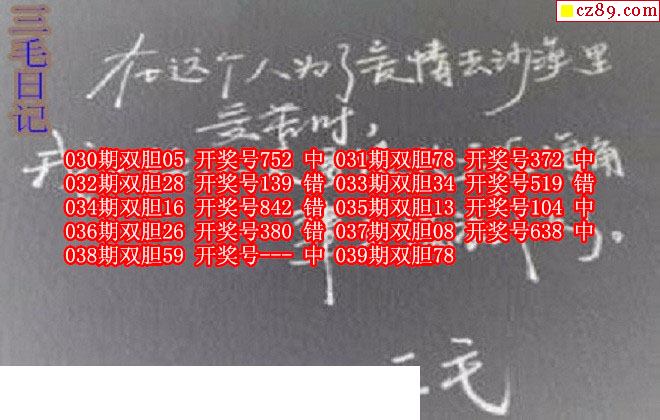 三毛日记
cz89.com
在这个人为了爱情去沙漠里
受苦时,
我
角
030期双胆05 开奖号752 中 031期双胆78 开奖号372 中
032期双胆28 开奖号139 错 033期双胆34 开奖号519 错
034期双胆16 开奖号842 错 035期双胆13 开奖号104 中
036期双胆26 开奖号380 错 037期双胆08 开奖号638 中
038期双胆59 开奖号--- 中 039期双胆78
三毛